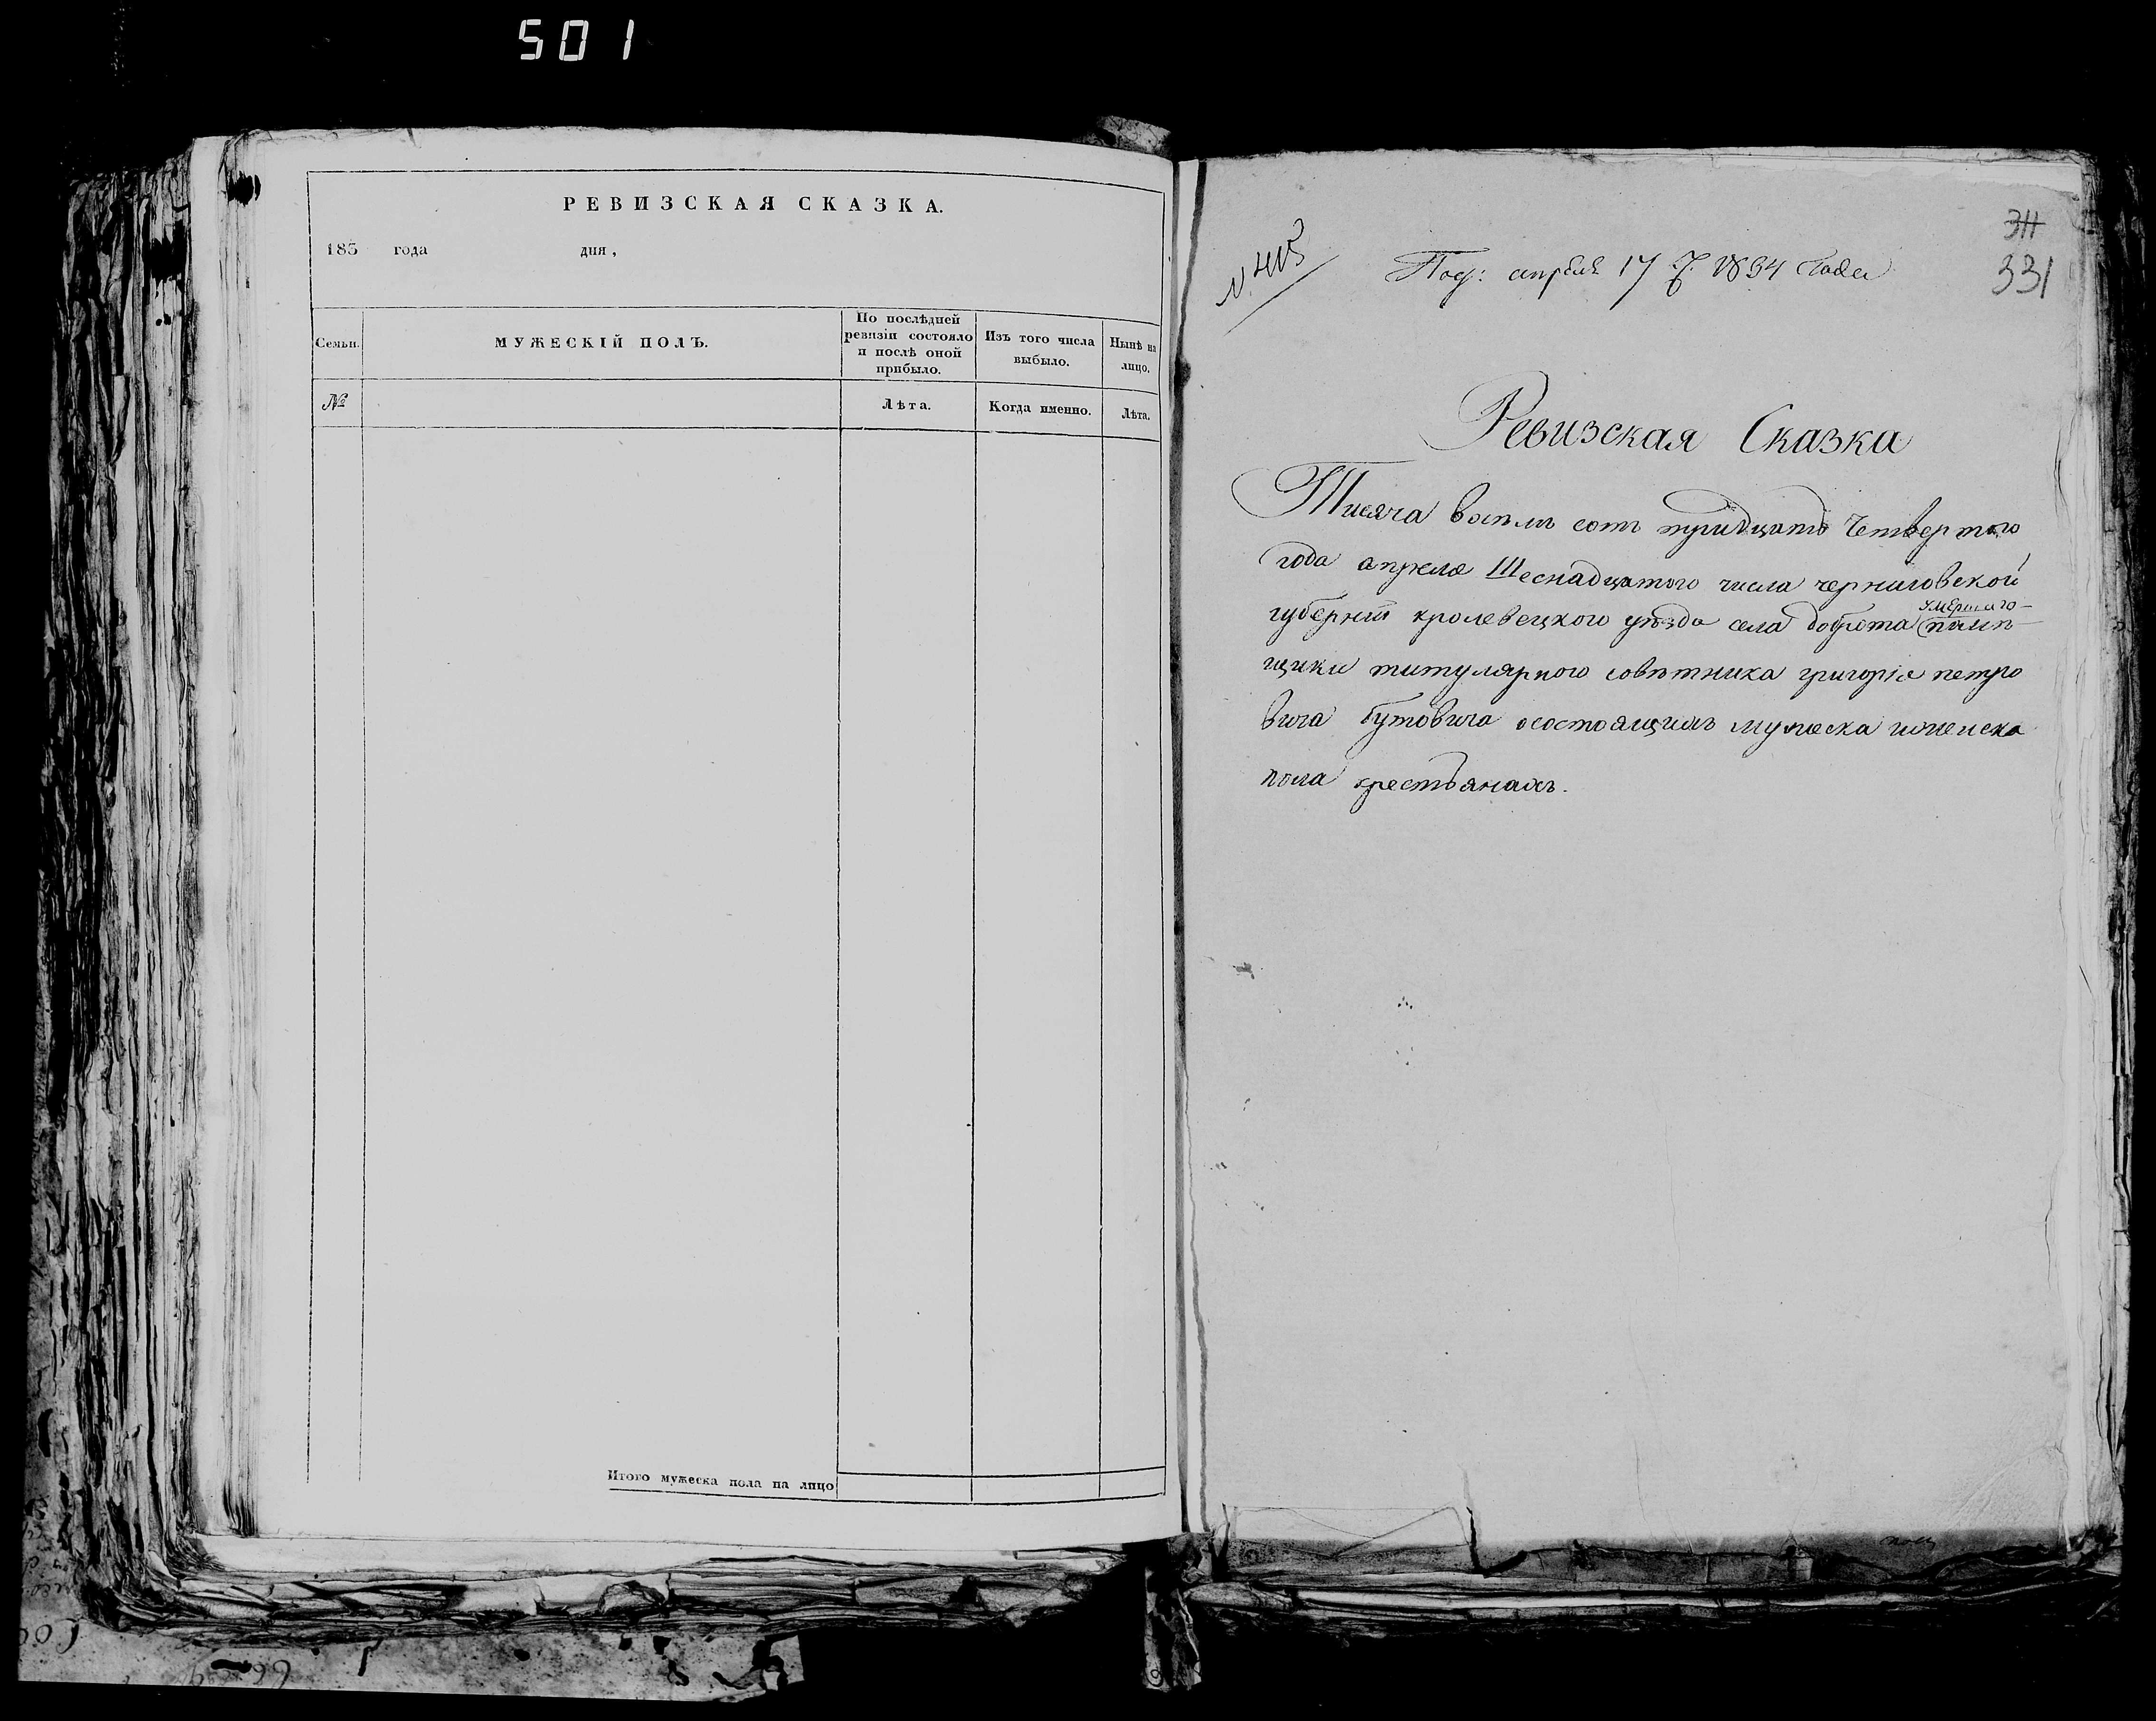 501
РЕВИЗСКАЯ СКАЗКА.
183 года дня,
Семьи.
МУЖЕСКІЙ ПОЛЪ.
По послѣдней
ревизіи состояло
и послѣ оной
прибыло.
Изъ того числа
выбыло.
Нынѣ на
лицо.
№
Лѣта.
Когда именно.
Лѣта.
Итого мужеска пола на лицо
331
Под: апрѣля 17 д. 1834 года
Ревизская Сказка
Тисяча восѣмъ сотъ тридцатъ четвертого
года апреля Шеснадцатого числа черниговской
губерніи кролевецкого уѣзда села добротова умершаго помѣ
щика титулярного совѣтника григорія петро
вича бутовича осостоящихъ мужеска иженска
пола крестъянахъ.